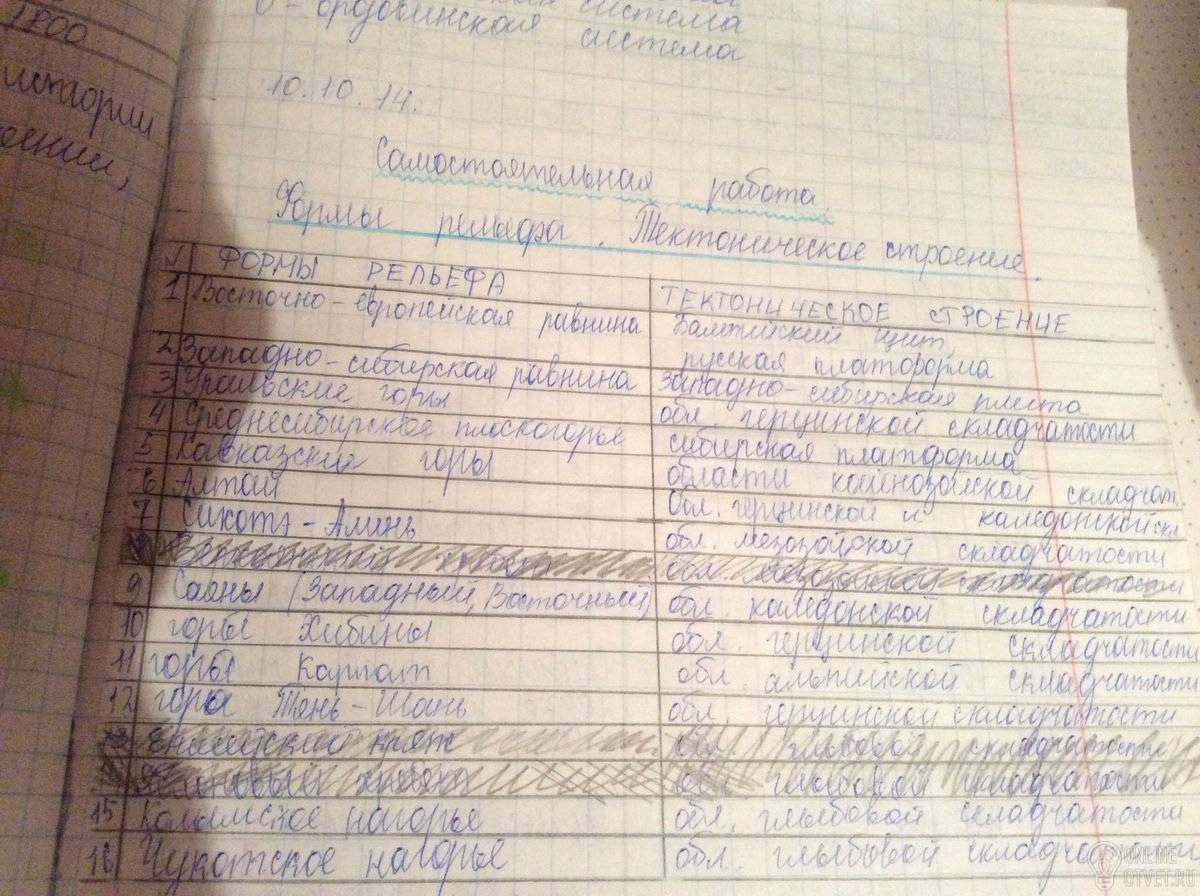 1200
истории
0 - ордовинская система
система
10.10.14.
Самостоятельная работа.
Формы рельефа. Тектоническое строение.
ФОРМЫ РЕЛЬЕФА ТЕКТОНИЧЕСКОЕ СТРОЕНИЕ
1 Восточно-европейская равнина Балтийский щит,
русская платформа
2 Западно-сибирская равнина западно-сибирская плита
3 Уральские горы обл. герцинской складчатости
4 Среднесибирское плоскогорье сибирская платформа
5 Кавказские горы области кайнозойской складчат.
6 Алтай обл. герцинской и каледонской скл
7 Сихотэ-Алинь обл. мезозойской складчатости
9 Саяны (Западный, Восточный) обл. каледонской складчатости
10 горы Хибины обл. герцинской складчатости
11 горы Карпат обл. альпийской складчатости
12 гора Тянь-Шань обл. герцинской складчатости
13 Енисейский кряж обл. глыбовой складчатости
обл. глыбовой складчатости
15 Колымское нагорье обл. глыбовой складчатости
16 Чукотское нагорье обл. глыбовой складчатости
ONLINE
OTVET.RU